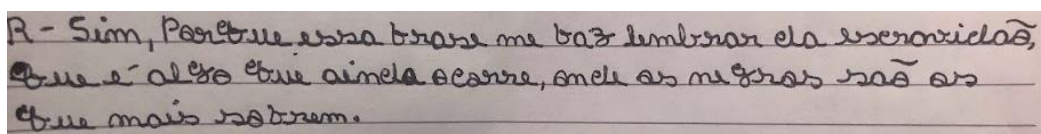 R - Sim, Porque essa frase me faz lembrar da escravidão,
que é algo que ainda ocorre, onde os negros são os
que mais sofrem.